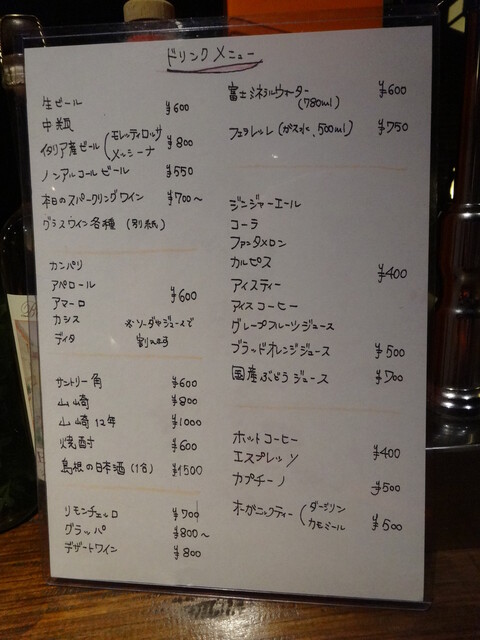 ドリンクメニュー
生ビール ¥600
中瓶
イタリア産ビール (モレッティロッサ ¥800
メッシーナ
ノンアルコールビール ¥550
本日のスパークリングワイン ¥700〜
グラスワイン各種 (別紙)
カンパリ
アペロール
アマーロ ¥600
カシス ※ソーダやジュースで
ディタ 割ります
サントリー角 ¥600
山崎 ¥800
山崎12年 ¥1000
焼酎 ¥600
島根の日本酒(1合) ¥1500
リモンチェルロ ¥700
グラッパ ¥800〜
デザートワイン ¥800
富士ミネラルウォーター ¥600
(780ml)
フェラレッレ (ガス水、500ml) ¥750
ジンジャーエール
コーラ
ファンタメロン
カルピス
アイスティー ¥400
アイスコーヒー
グレープフルーツジュース
ブラッドオレンジジュース ¥500
国産ぶどうジュース ¥700
ホットコーヒー
エスプレッソ ¥400
カプチーノ ¥500
オーガニックティー (ダージリン
カモミール ¥500